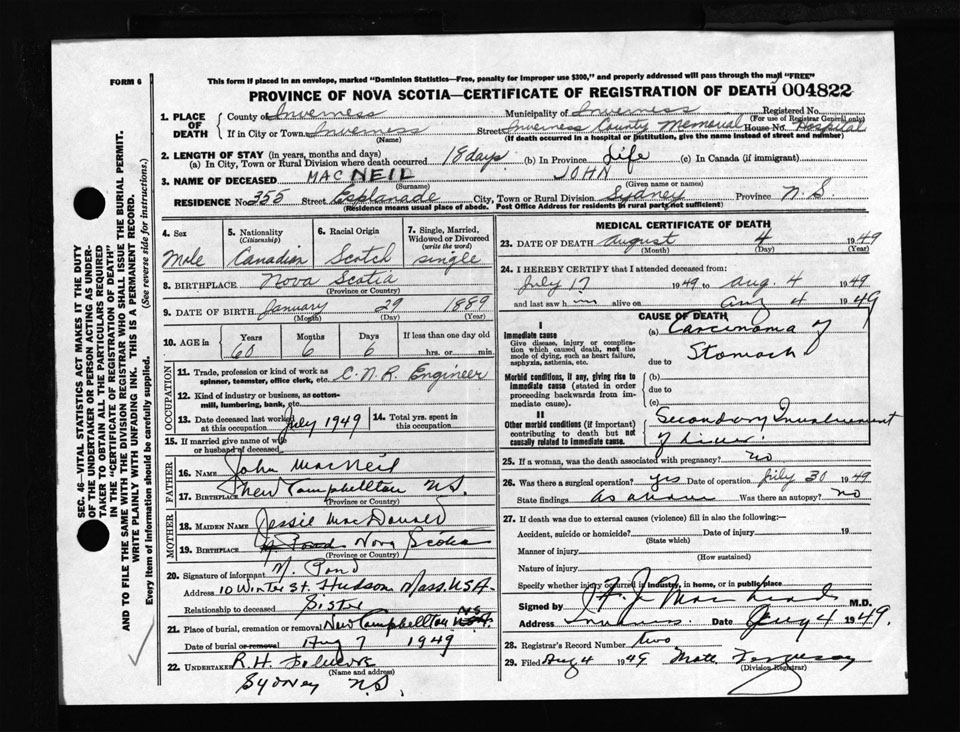 FORM 6
This form if placed in an envelope, marked "Dominion Statistics—Free, penalty for improper use $300," and properly addressed will pass through the mail "FREE"
PROVINCE OF NOVA SCOTIA—CERTIFICATE OF REGISTRATION OF DEATH 004822
1. PLACE OF DEATH
County of Inverness Municipality of Inverness Registered No.
(For use of Registrar General only)
If in City or Town Inverness Street Inverness County Memorial House No. Hospital
(Name) (If death occurred in a hospital or institution, give the name instead of street and number)
2. LENGTH OF STAY (in years, months and days)
(a) In City, Town or Rural Division where death occurred 18 days (b) In Province Life (c) In Canada (if immigrant)
3. NAME OF DECEASED MACNEIL JOHN
(Surname) (Given name or names)
RESIDENCE No. 355 Street Esplanade City, Town or Rural Division Sydney Province N.S
(Residence means usual place of abode. Post Office Address for residents in rural party not sufficient)
4. Sex
Male
5. Nationality
(Citizenship)
Canadian
6. Racial Origin
Scotch
7. Single, Married, Widowed or Divorced
(write the word)
single
8. BIRTHPLACE Nova Scotia
(Province or Country)
9. DATE OF BIRTH January 29 1889
(Month) (Day) (Year)
10. AGE in Years Months Days If less than one day old
60 6 6 hrs. or min.
OCCUPATION
11. Trade, profession or kind of work as
spinner, teamster, office clerk, etc. C.N.R. Engineer
12. Kind of industry or business, as cotton-
mill, lumbering, bank, etc.
13. Date deceased last worked
at this occupation July 1949
14. Total yrs. spent in
this occupation
15. If married give name of wife
or husband of deceased
FATHER
16. Name John MacNeil
17. Birthplace New Campbellton N.S.
(Province or Country)
MOTHER
18. Maiden Name Jessie MacDonald
19. Birthplace Nova Scotia
(Province or Country)
20. Signature of informant M. Pond
Address 10 Winter St. Hudson Mass. USA.
Relationship to deceased Sister
21. Place of burial, cremation or removal New Campbellton N.S.
Date of burial or removal Aug 7 1949
22. Undertaker R.H.
(Name and address)
Sydney N.S.
MEDICAL CERTIFICATE OF DEATH
23. DATE OF DEATH August 4 1949
(Month) (Day) (Year)
24. I HEREBY CERTIFY that I attended deceased from:
July 17 1949 to Aug. 4 1949
and last saw him alive on Aug 4 1949
CAUSE OF DEATH
I
Immediate cause
Give disease, injury or complication which caused death, not the mode of dying, such as heart failure, asphyxia, asthenia, etc.
(a) Carcinoma of
Stomach
due to
Morbid conditions, if any, giving rise to immediate cause (stated in order proceeding backwards from immediate cause).
(b)
due to
(c)
II
Other morbid conditions (if important) contributing to death but not causally related to immediate cause.
Secondary Involvement
of Liver.
25. If a woman, was the death associated with pregnancy? no
26. Was there a surgical operation? yes Date of operation July 30 1949
State findings as above Was there an autopsy? no
27. If death was due to external causes (violence) fill in also the following:—
Accident, suicide or homicide? Date of injury 19
(State which)
Manner of injury
(How sustained)
Nature of injury
Specify whether injury occurred in industry, in home, or in public place
Signed by M.D.
Address Date Aug 4 1949.
28. Registrar's Record Number two
29. Filed Aug 4 1949
(Division Registrar)
SEC. 46—VITAL STATISTICS ACT MAKES IT THE DUTY
OF THE UNDERTAKER OR PERSON ACTING AS UNDER-
TAKER TO OBTAIN ALL THE PARTICULARS REQUIRED
IN THE "CERTIFICATE OF REGISTRATION OF DEATH"
AND TO FILE THE SAME WITH THE DIVISION REGISTRAR WHO SHALL ISSUE THE BURIAL PERMIT.
WRITE PLAINLY WITH UNFADING INK. THIS IS A PERMANENT RECORD.
Every item of information should be carefully supplied. (See reverse side for instructions.)